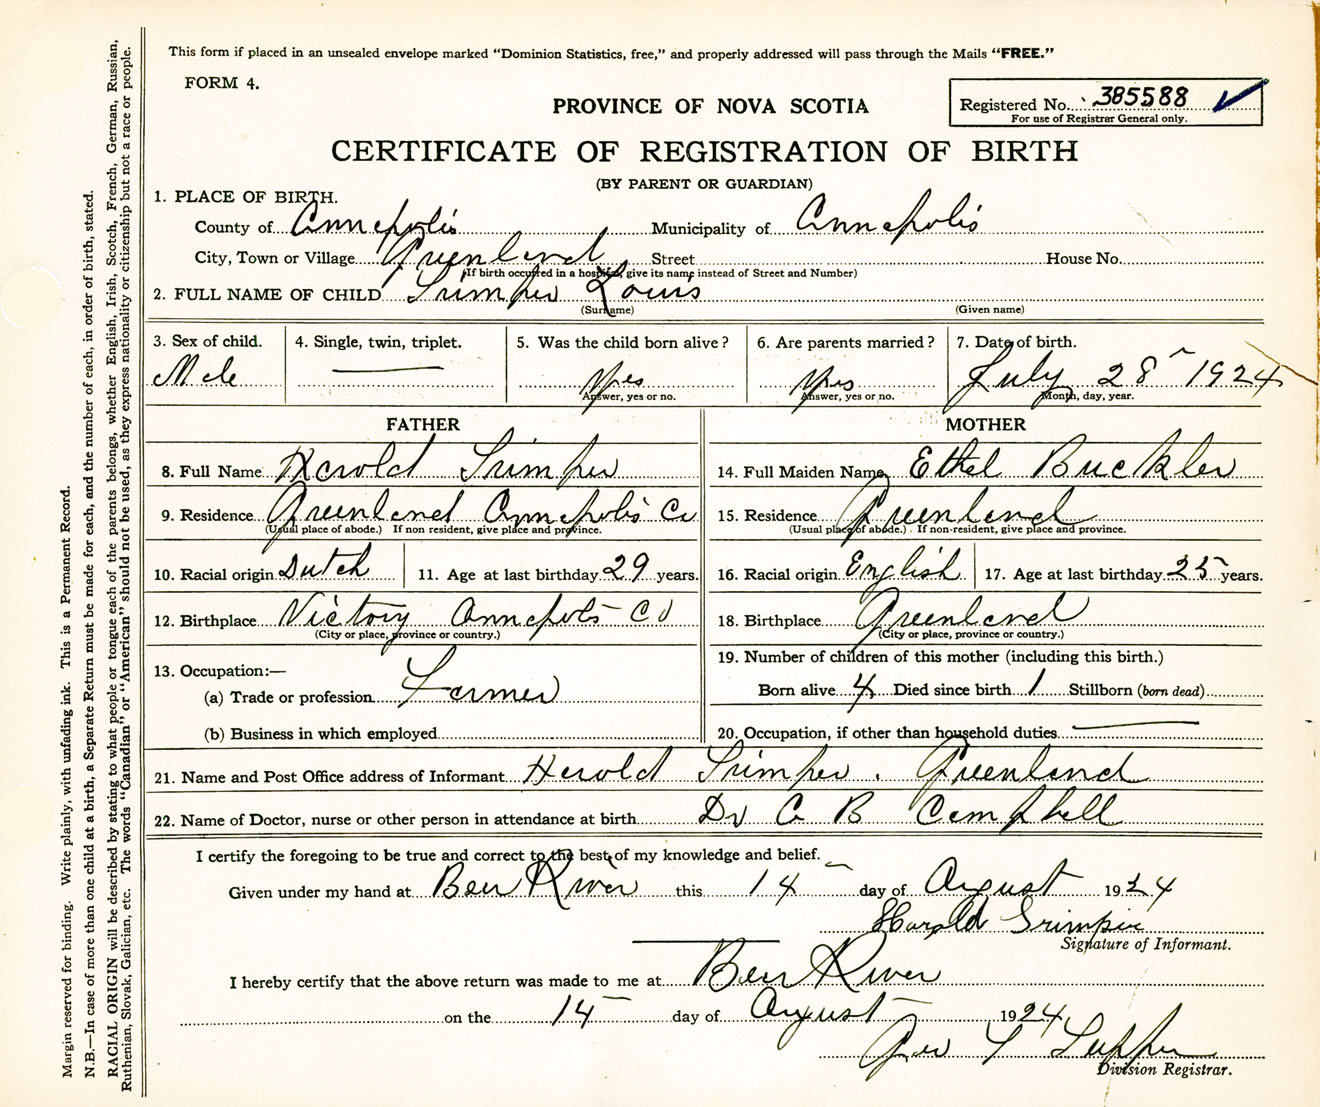 This form if placed in an unsealed envelope marked "Dominion Statistics, free," and properly addressed will pass through the Mails "FREE."
FORM 4.
PROVINCE OF NOVA SCOTIA
Registered No. 385588
For use of Registrar General only.
CERTIFICATE OF REGISTRATION OF BIRTH
(BY PARENT OR GUARDIAN)
1. PLACE OF BIRTH.
County of Annapolis Municipality of Annapolis
City, Town or Village Greenland Street House No.
(If birth occurred in a hospital, give its name instead of Street and Number)
2. FULL NAME OF CHILD Trimper Louis
(Surname) (Given name)
3. Sex of child. 4. Single, twin, triplet. 5. Was the child born alive? 6. Are parents married? 7. Date of birth.
Male Yes Yes July 28 1924
Answer, yes or no. Answer, yes or no. Month, day, year.
FATHER MOTHER
8. Full Name Harold Trimper 14. Full Maiden Name Ethel Buckler
9. Residence Greenland Annapolis Co 15. Residence Greenland
(Usual place of abode.) If non resident, give place and province. (Usual place of abode.) If non-resident, give place and province.
10. Racial origin Dutch 11. Age at last birthday 29 years. 16. Racial origin English 17. Age at last birthday 25 years.
12. Birthplace Victory Annapolis Co 18. Birthplace Greenland
(City or place, province or country.) (City or place, province or country.)
13. Occupation:— 19. Number of children of this mother (including this birth.)
(a) Trade or profession Farmer Born alive 4 Died since birth 1 Stillborn (born dead)
(b) Business in which employed 20. Occupation, if other than household duties
21. Name and Post Office address of Informant Harold Trimper. Greenland
22. Name of Doctor, nurse or other person in attendance at birth Dr A B Campbell
I certify the foregoing to be true and correct to the best of my knowledge and belief.
Given under my hand at Bear River this 14 day of August 1924
Harold Trimper
Signature of Informant.
I hereby certify that the above return was made to me at Bear River
on the 14 day of August 1924
Geo L Tupper
Division Registrar.
Margin reserved for binding. Write plainly, with unfading ink. This is a Permanent Record.
N.B.—In case of more than one child at a birth, a Separate Return must be made for each, and the number of each, in order of birth, stated.
RACIAL ORIGIN will be described by stating to what people or tongue each of the parents belongs, whether English, Irish, Scotch, French, German, Russian,
Ruthenian, Slovak, Galician, etc. The words "Canadian" or "American" should not be used, as they express nationality or citizenship but not a race or people.